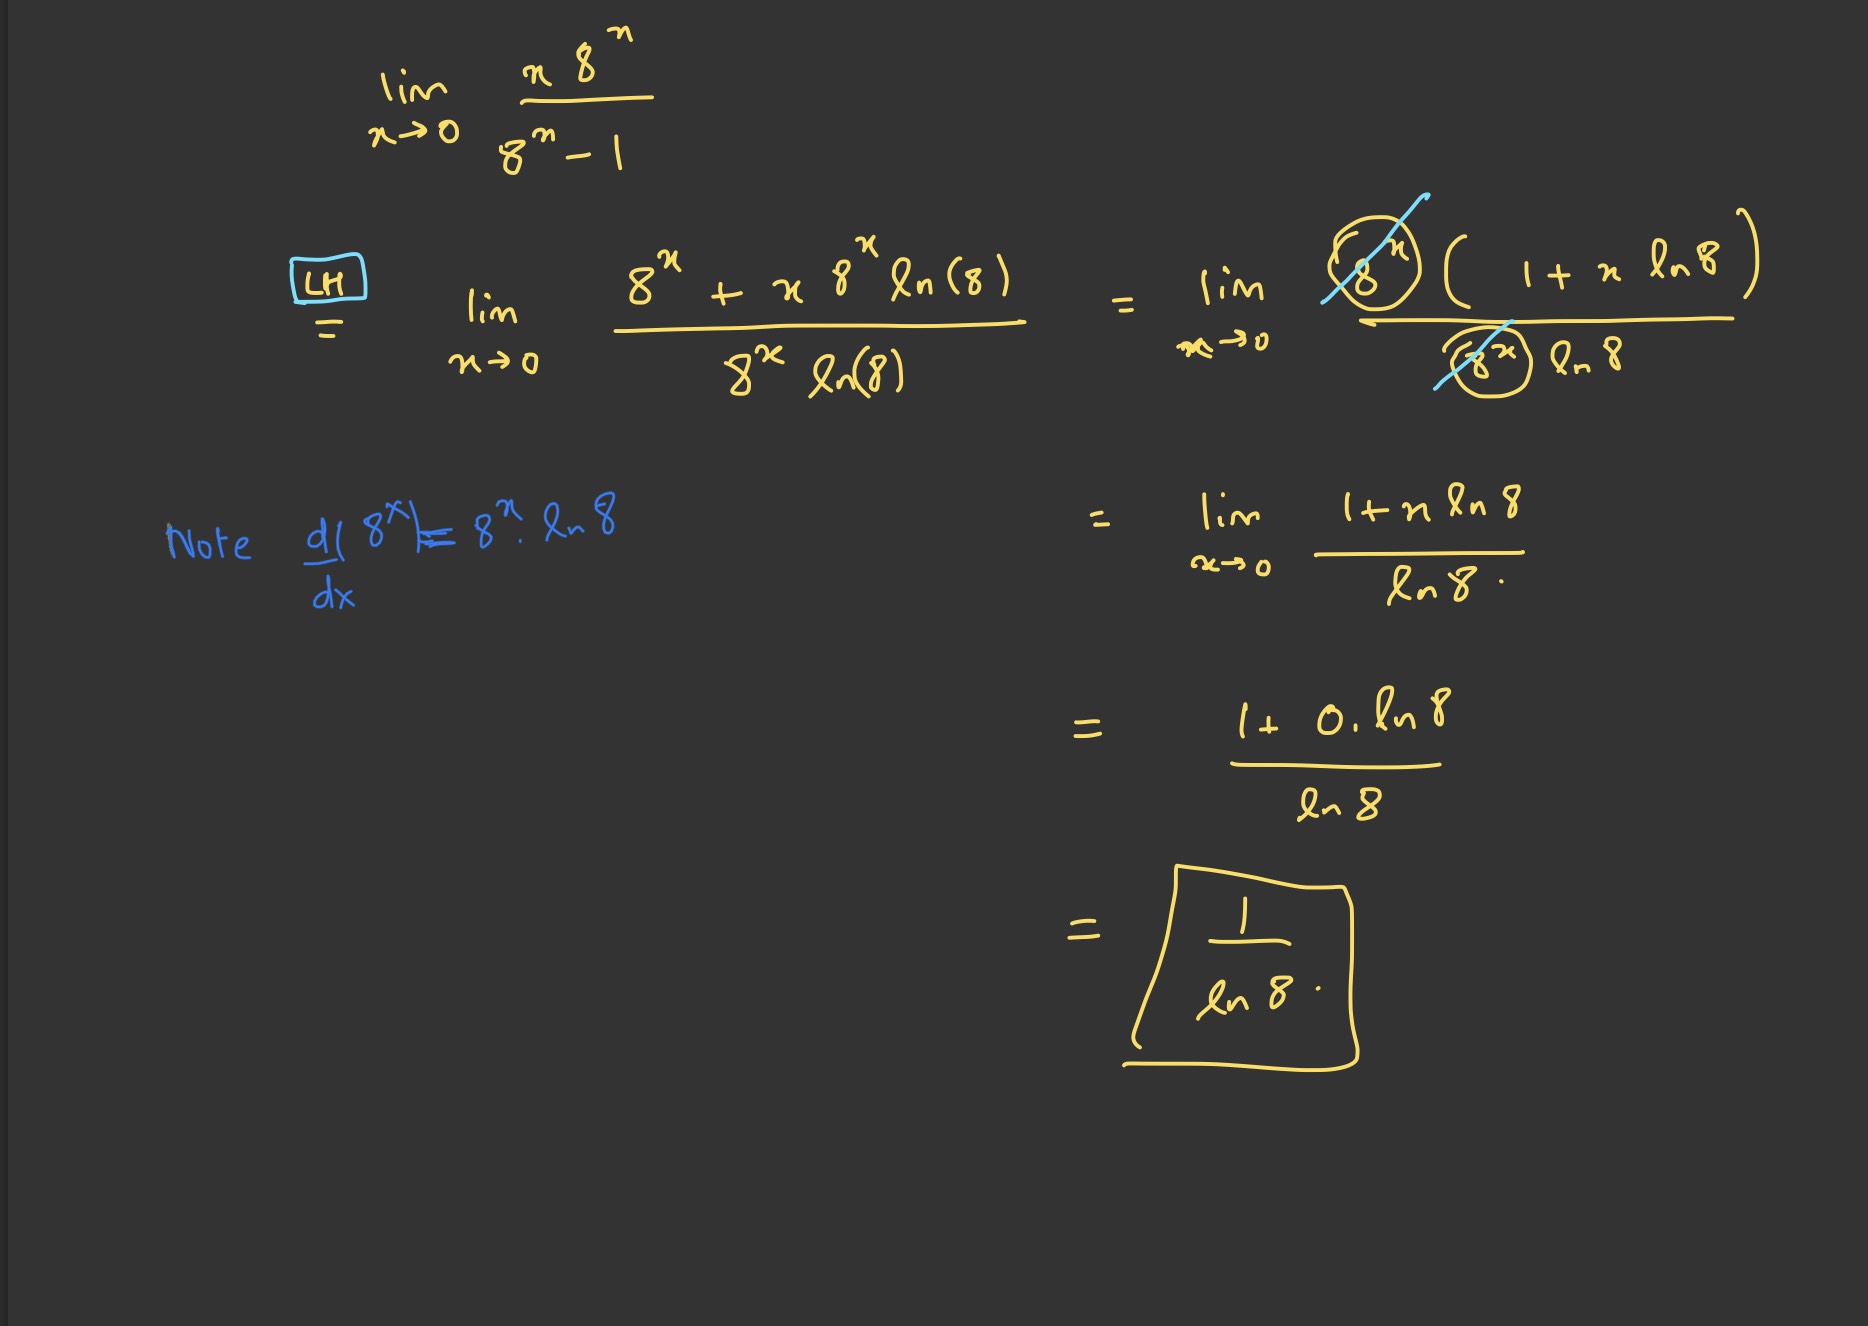 lim x→0 x 8^x / 8^x − 1
LH = lim x→0 8^x + x 8^x ln(8) / 8^x ln(8) = lim x→0 8^x (1 + x ln 8) / 8^x ln 8
Note d/dx (8^x) = 8^x · ln 8
= lim x→0 1 + x ln 8 / ln 8 .
= 1 + 0 . ln 8 / ln 8
= 1 / ln 8 .